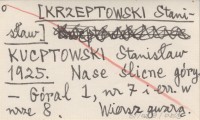 [KRZEPTOWSKI Stani-
sław]
KUCPTOWSKI Stanisław
1925. Nase ślicne góry
— Góral 1, nr 7 i err. w
nrze 8. Wiersz gwarą.